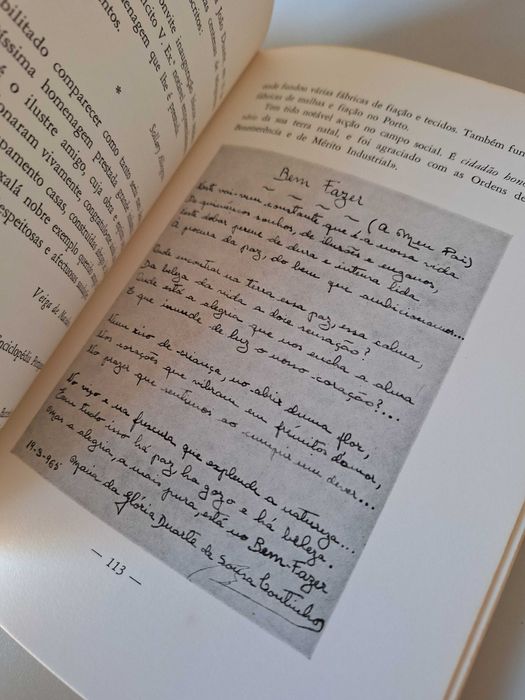 João Dua
convite inauguração
escito V. Ex.ª
menagem que lhe é prest
mentos.
*
Solbay Aliegre
bilitado comparecer como tanto seria meu
íssima homenagem prestada grande
é o ilustre amigo, cuja obra e
onaram vivamente, congratulando-me
pamento casas, construídas
xalá nobre exemplo
espeitosas e afectuosas
Veiga de
nciclopédia
onde fundou várias fábricas de fiação e tecidos. Também fun
fábricas de malhas e fiação no Porto.
Tem tido notável acção no campo social. É cidadão bene
mérito da sua terra natal, e foi agraciado com as Ordens de
Benemerência e de Mérito Industrial».
Bem Fazer
(A Meu Pai)
Neste vai-vem constante que é a nossa vida
De quiméricos sonhos, de ilusões e enganos,
Neste dobar perene de dura e intensa lida
À procura da paz, do bem que ambicionamos...
Onde encontrar na terra essa paz, essa calma,
Da beleza da vida a doce sensação?
Onde está a alegria que nos encha a alma
E que inunde de luz o nosso coração?...
Num riso de criança, no abrir duma flor,
Nos corações que vibram em frémitos damor,
No prazer que sentimos ao cumprir um dever...
No viço e na frescura que esplende a natureza...
Em tudo isso há paz, há gozo e há beleza.
Mas a alegria, a mais pura, está no Bem-Fazer
19-3-965
Maria da Glória Duarte de Sousa Coutinho
— 113 —